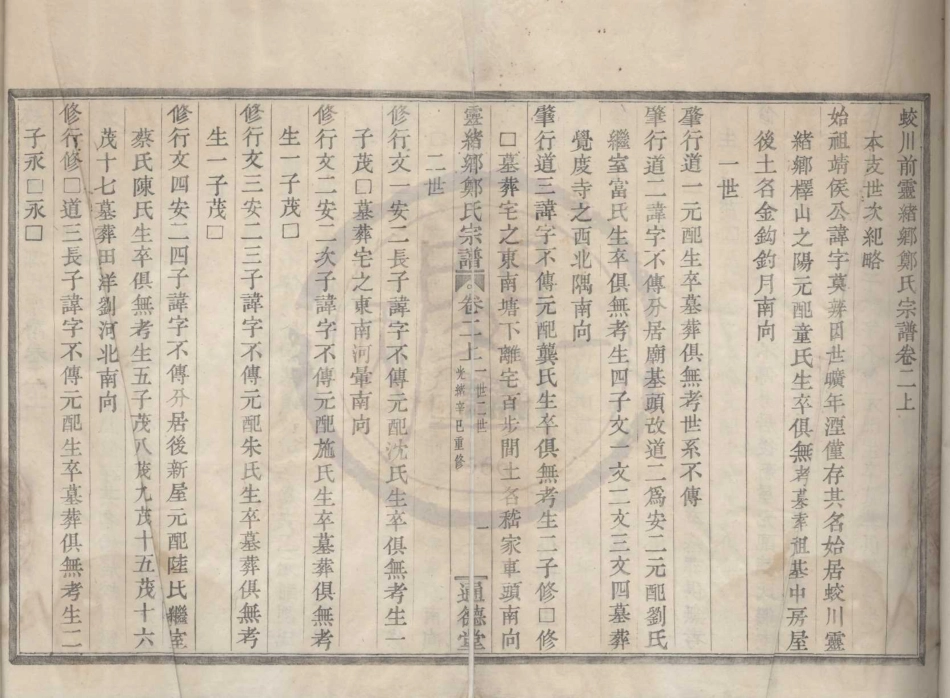 蛟川前靈緒鄉鄭氏宗譜卷二上
本支世次紀略
始祖靖侯公諱字莫辨因世曠年湮僅存其名始居蛟川靈
緒鄉檡山之陽元配童氏生卒俱無考墓奉祖基中房屋
後土名金鈎釣月南向
一世
肇行道一元配生卒墓葬俱無考世系不傳
肇行道二諱字不傳分居廟基頭改道二爲安二元配劉氏
繼室富氏生卒俱無考生四子文一文二文三文四墓葬
覺度寺之西北隅南向
肇行道三諱字不傳元配龔氏生卒俱無考生二子修□修
□墓葬宅之東南塘下離宅百步間土名嵇家車頭南向
靈緒鄉鄭氏宗譜 卷二上 一世二世 光緒辛巳重修 一 通德堂
二世
修行文一安二長子諱字不傳元配沈氏生卒俱無考生一
子茂□墓葬宅之東南河暈南向
修行文二安二次子諱字不傳元配施氏生卒墓葬俱無考
生一子茂□
修行文三安二三子諱字不傳元配朱氏生卒墓葬俱無考
生一子茂□
修行文四安二四子諱字不傳分居後新屋元配陸氏繼室
蔡氏陳氏生卒俱無考生五子茂八茂九茂十五茂十六
茂十七墓葬田洋劉河北南向
修行修□道三長子諱字不傳元配生卒墓葬俱無考生二
子永□永□